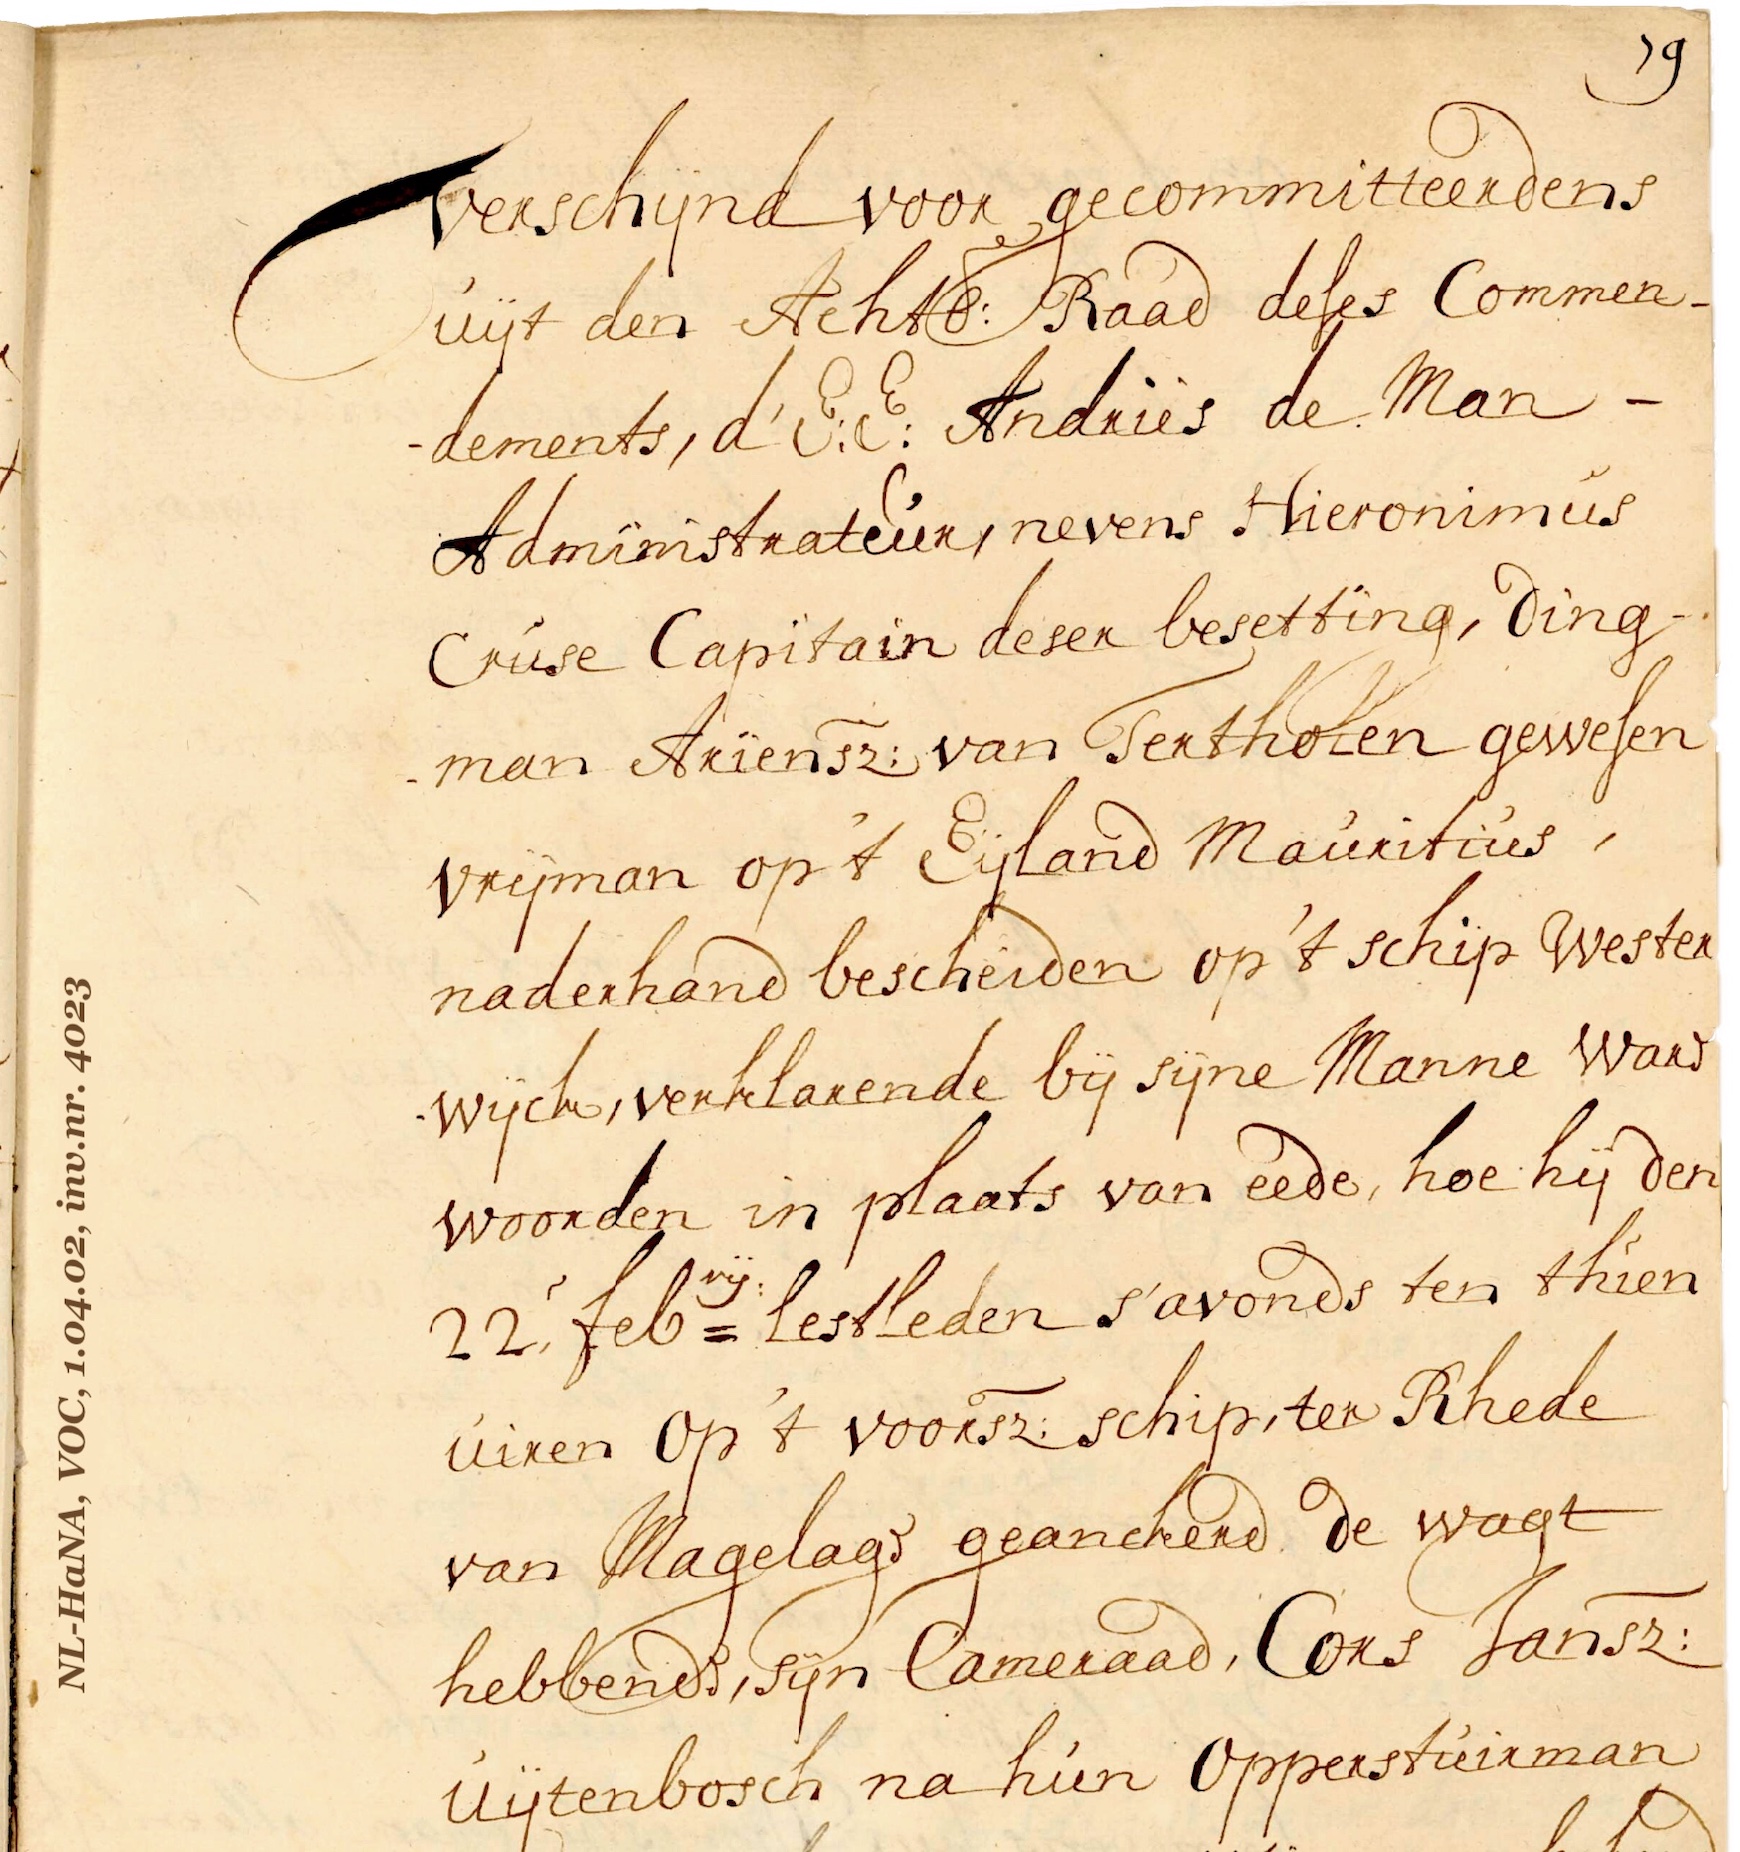 79
verschijnd voor gecommitteerdens
uijt den Achtb: Raad deses Commen-
-dements, d'E:E: Andries de Man -
Administrateur, nevens Hieronimus
Cruse Capitain deser besetting, Ding-
-man Ariensz: van Tertholen gewesen
vrijman op 't Eijland Mauritius,
naderhand bescheiden op 't schip Wester
-wijck, verklarende bij sijne Manne ward
woorden in plaats van eede, hoe hij den
22, febrij: lestleden s'avonds ten thien
uiren op 't voorsz: schip, ter Rhede
van Magelags geanckerd de wagt
hebbende, sijn Cameraad, Cors Jansz:
uijtenbosch na hun Opperstuirman
NL-HaNA, VOC, 1.04.02, inv.nr. 4023